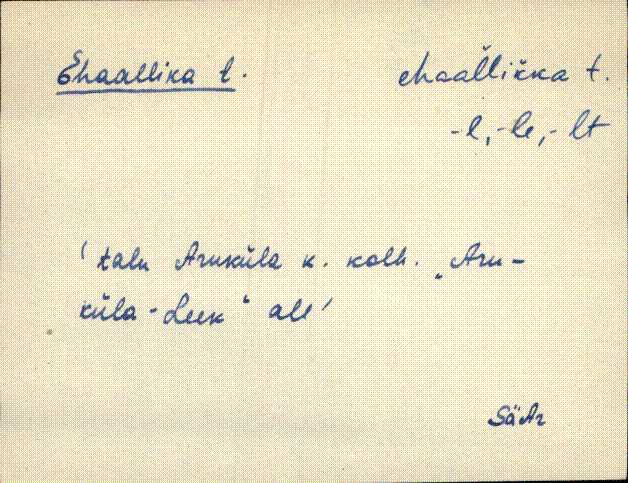 Ehaallika t.
ehaal̆lik̆ka t.
-l, -le, -lt
'talu Aruküla k. kolh. „Aru-
küla-Leek" all'
SäAr